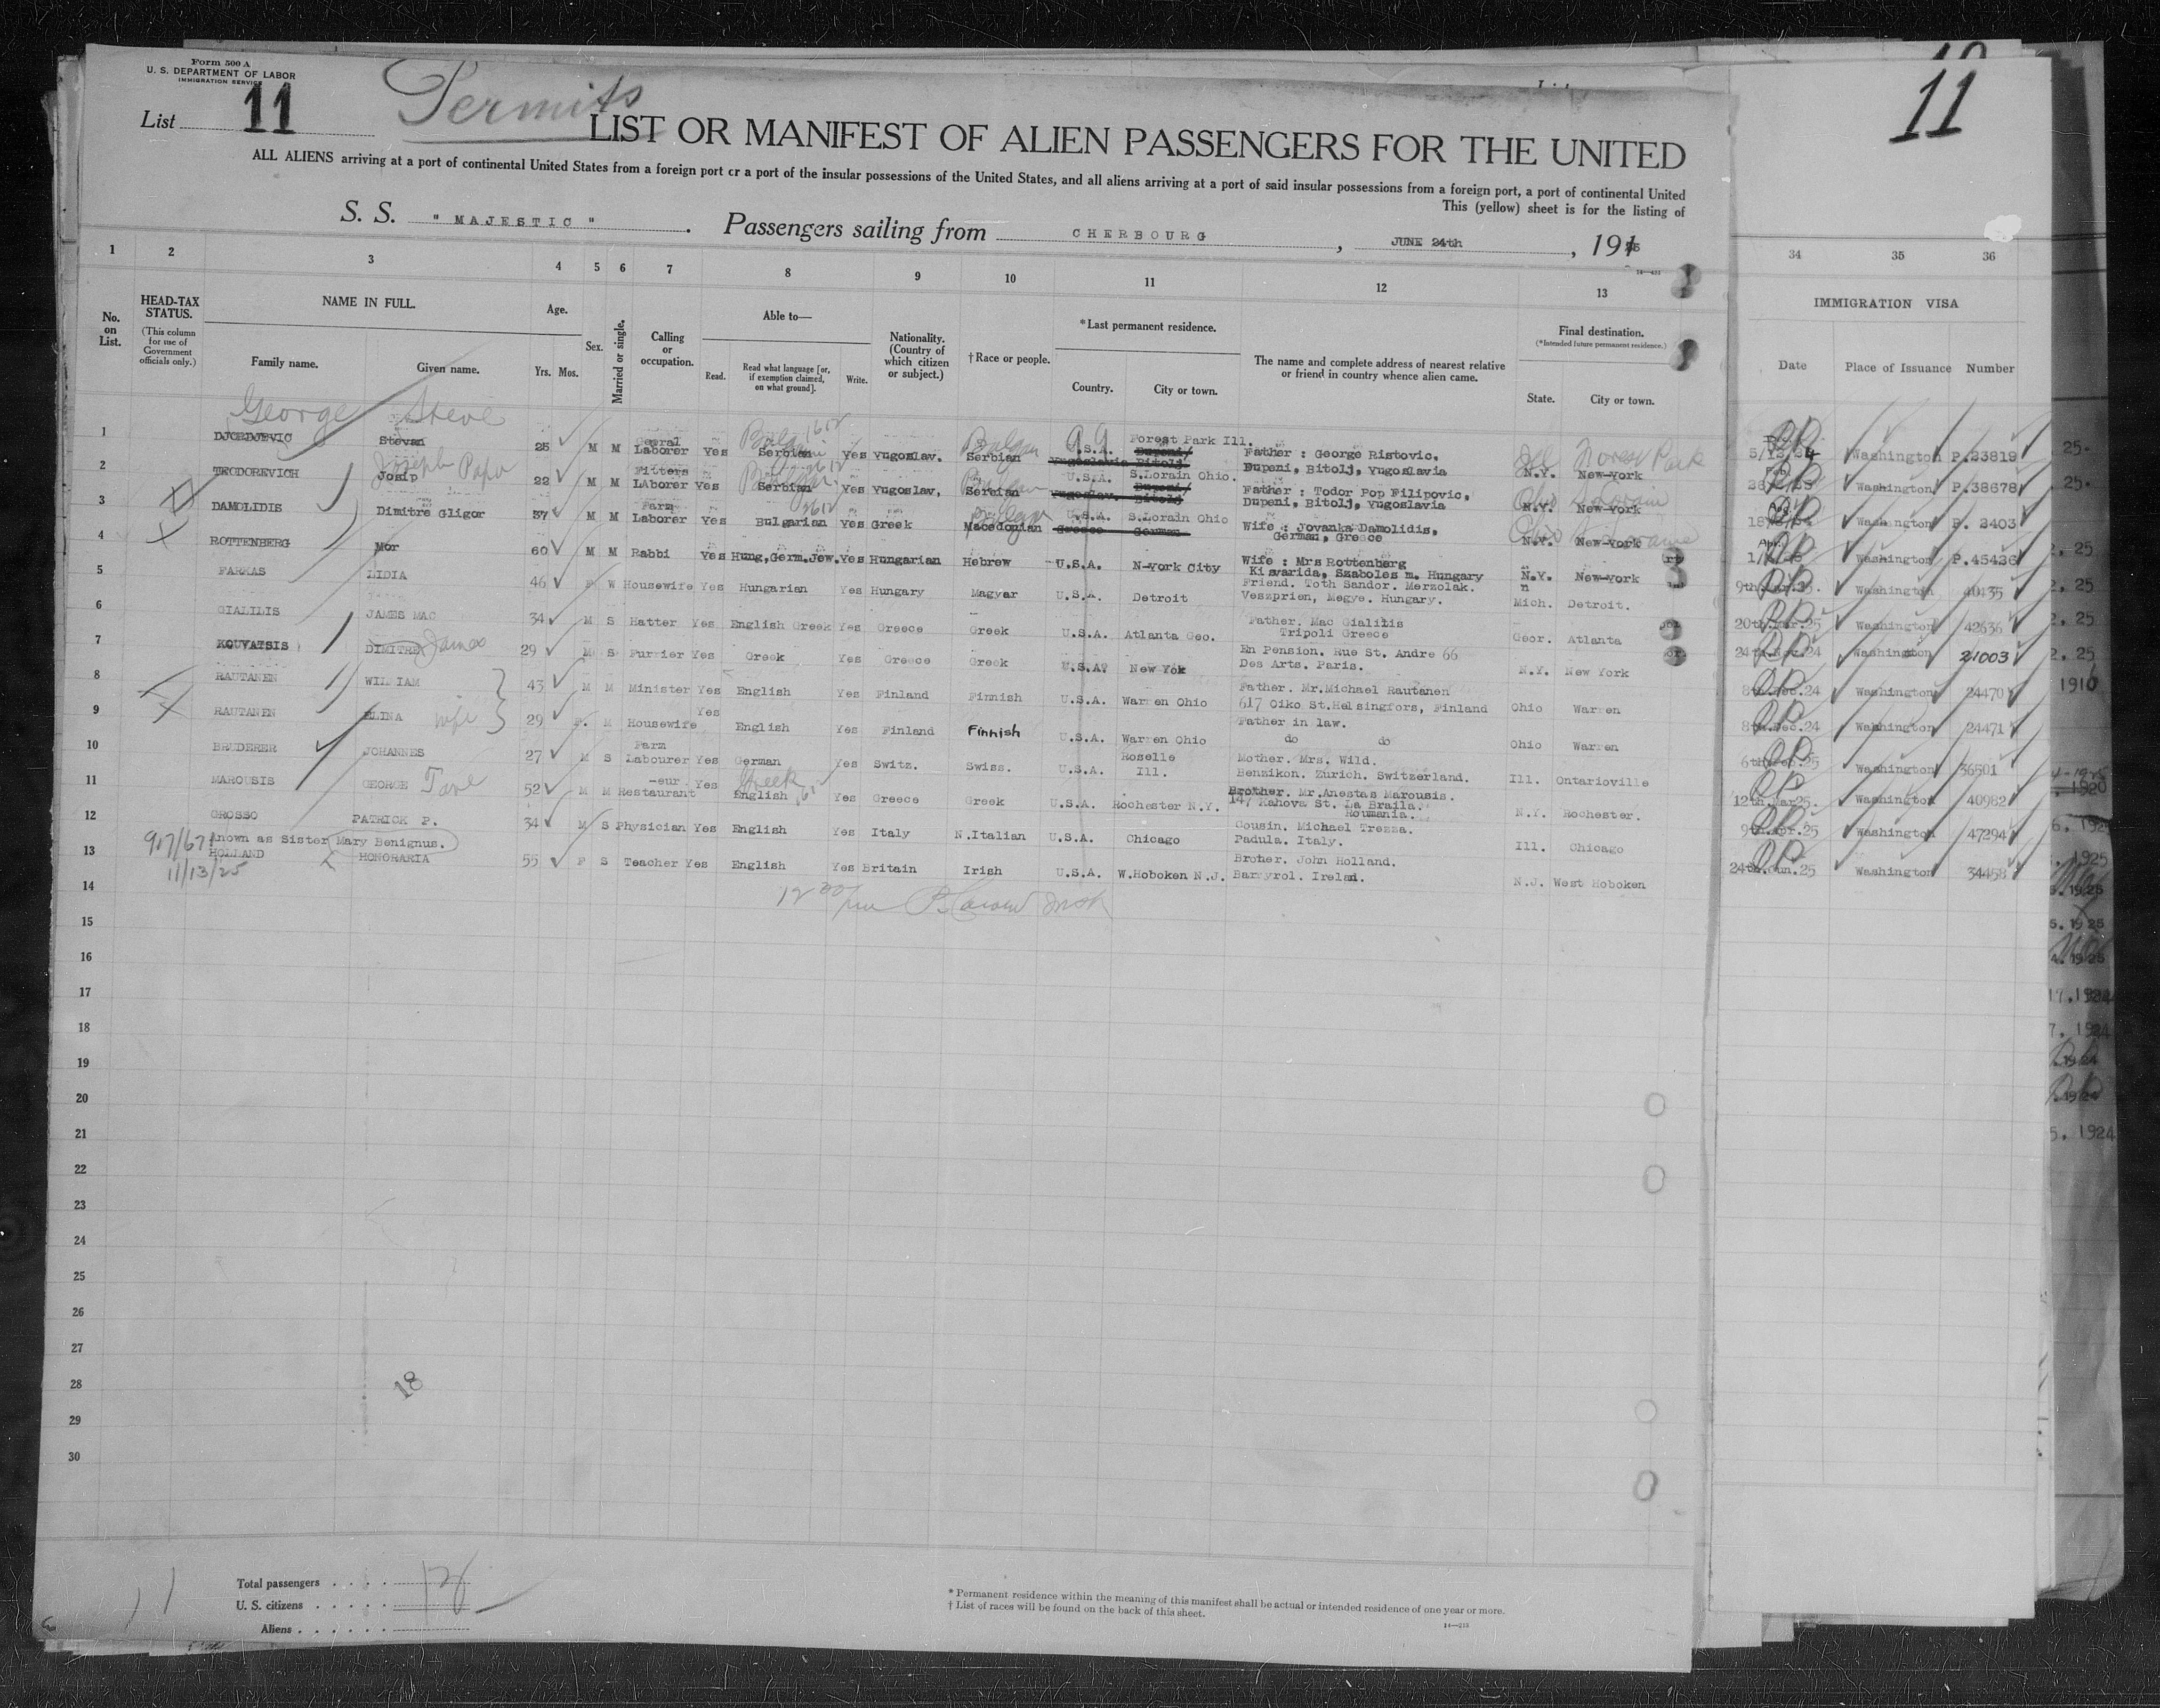 Form 500 A
U. S. DEPARTMENT OF LABOR
IMMIGRATION SERVICE
List 11
Permits
11
LIST OR MANIFEST OF ALIEN PASSENGERS FOR THE UNITED
ALL ALIENS arriving at a port of continental United States from a foreign port or a port of the insular possessions of the United States, and all aliens arriving at a port of said insular possessions from a foreign port, a port of continental United
This (yellow) sheet is for the listing of
S. S. " MAJESTIC " . Passengers sailing from CHERBOURG , JUNE 24th , 191
1 2 3 4 5 6 7 8 9 10 11 12 13 34 35 36
No. on List.
HEAD-TAX STATUS.
(This column for use of Government officials only.)
NAME IN FULL.
Family name. Given name.
Age.
Yrs. Mos.
Sex.
Married or single.
Calling or occupation.
Able to—
Read. Read what language [or, if exemption claimed, on what ground]. Write.
Nationality. (Country of which citizen or subject.)
†Race or people.
*Last permanent residence.
Country. City or town.
The name and complete address of nearest relative or friend in country whence alien came.
Final destination.
(*Intended future permanent residence.)
State. City or town.
IMMIGRATION VISA
Date Place of Issuance Number
George Steve
1 DJORDJEVIC Stevan 25 M M Laborer Yes Serbian Yes Yugoslav. Serbian U.S.A. Forest Park Ill. Father : George Ristovic. Dupeni, Bitolj, Yugoslavia N.Y. New-York Washington P.23819
Joseph Papo
2 TEODOREVICH Josip 22 M M Fitters Laborer Yes Serbian Yes Yugoslav. Serbian U.S.A. S.Lorain Ohio. Father : Todor Pop Filipovic. Dupeni, Bitolj, Yugoslavia N.Y. New-York Washington P.38678
3 DAMOLIDIS Dimitre Gligor 37 M M Farm Laborer Yes Bulgarian Yes Greek Macedonian U.S.A. S.Lorain Ohio Wife : Jovanka Damolidis, German, Greece N.Y. New-York Washington P. 2403
4 ROTTENBERG Mor 60 M M Rabbi Yes Hung,Germ.Jew. Yes Hungarian Hebrew U.S.A. N-York City Wife : Mrs Rottenberg Kisvarida, Szaboles m. Hungary N.Y. New-York Washington P.45436
5 FARKAS LIDIA 46 F W Housewife Yes Hungarian Yes Hungary Magyar U.S.A. Detroit Friend. Toth Sandor. Merzolak. Veszprien, Megye. Hungary. Mich. Detroit. Washington 40435
6 GIALILIS JAMES MAC 34 M S Hatter Yes English Greek Yes Greece Greek U.S.A. Atlanta Geo. Father. Mac Gialilis Tripoli Greece Geor. Atlanta 20th.Mar.25 Washington 42636
7 KOUVATSIS DIMITRE James 29 M S Furrier Yes Greek Yes Greece Greek U.S.A. New Yok En Pension. Rue St. Andre 66 Des Arts. Paris. N.Y. New York 24th.Nov.24 Washington 21003
8 RAUTANEN WILIAM 43 M M Minister Yes English Yes Finland Finnish U.S.A. Warren Ohio Father. Mr.Michael Rautanen 617 Oiko St.Helsingfors, Finland Ohio Warren 8th.Dec.24 Washington 24470
9 RAUTANEN ELINA wife 29 F. M Housewife Yes English Yes Finland Finnish U.S.A. Warren Ohio Father in law. do do Ohio Warren 8th.Dec.24 Washington 24471
10 BRUDERER JOHANNES 27 M S Farm Labourer Yes German Yes Switz. Swiss. U.S.A. Roselle Ill. Mother. Mrs. Wild. Benzikon. Zurich. Switzerland. Ill. Ontarioville Washington 36501
11 MAROUSIS GEORGE 52 M M Restaurant -eur Yes English Greek Yes Greece Greek U.S.A. Rochester N.Y. Brother. Mr.Anestas Marousis. 147 Rahova St. La Braila. Roumania. N.Y. Rochester. 12th.Mar25. Washington 40982
12 GROSSO PATRICK P. 34 M S Physician Yes English Yes Italy N.Italian U.S.A. Chicago Cousin. Michael Trezza. Padula. Italy. Ill. Chicago 9th.Apr.25 Washington 47294
Known as Sister Mary Benignus.
13 HOLLAND HONORARIA 55 F S Teacher Yes English Yes Britain Irish U.S.A. W.Hoboken N.J. Brother. John Holland. Barryrol. Ireland. N.J. West Hoboken Washington 34458
11/13/25
14
15
16
17
18
19
20
21
22
23
24
25
26
27
28
29
30
18
Total passengers . . . . .
U. S. citizens . . . . .
Aliens . . . . . .
* Permanent residence within the meaning of this manifest shall be actual or intended residence of one year or more.
† List of races will be found on the back of this sheet.